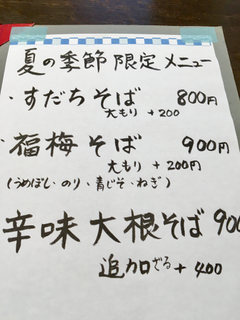 夏の季節限定メニュー
・すだちそば 800円
大もり +200
・福梅そば 900円
大もり +200円
(うめぼし・のり・青じそ・ねぎ)
辛味大根そば 900
追加ざる +400